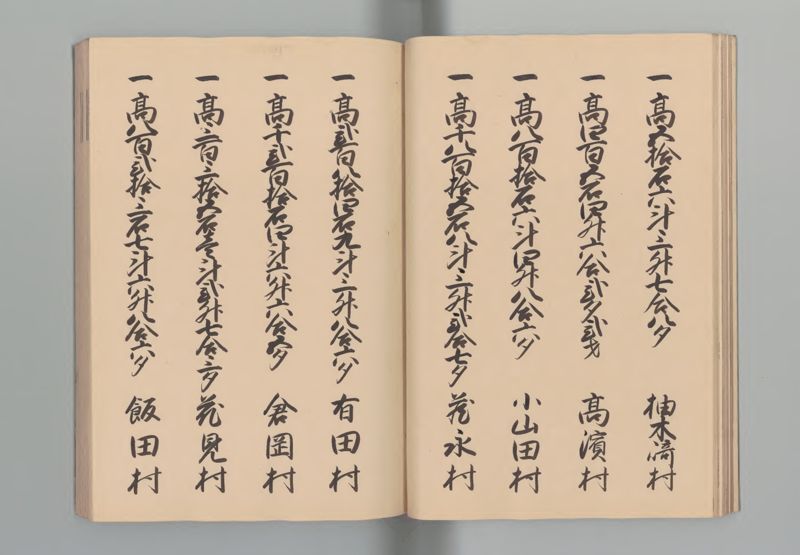 一高五拾石六斗三升七合八夕 柚木崎村
一高四百五石四升六合弐夕弐才 高濱村
一高八百拾石六斗四升八合六夕 小山田村
一高千八百拾五石八斗三升弐合七夕 花永村
一高弐百八拾四石九斗二升八合六夕 有田村
一高千弐百拾石四斗六升六合五夕 倉岡村
一高三百三拾五石壱斗弐升七合三夕 花見村
一高八百弐拾三石七斗六升八合六夕 飯田村